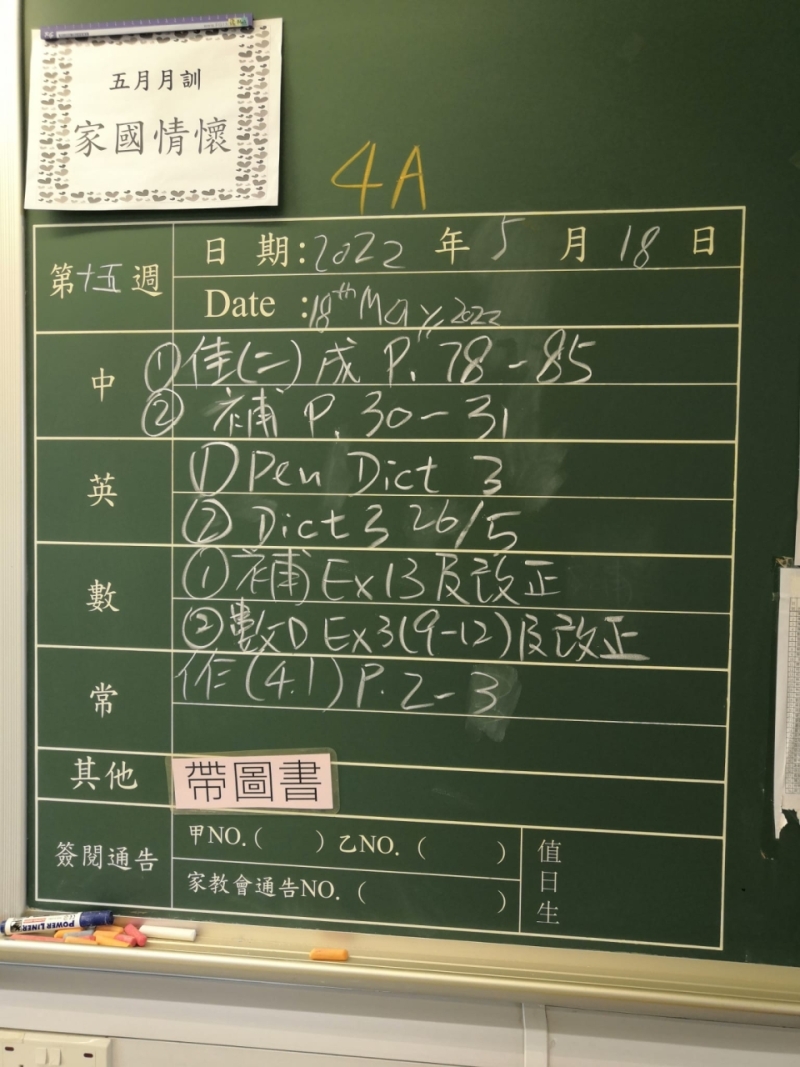 五月月訓
家國情懷
4A
第十五週
日期:2022年5月18日
Date :18th May, 2022
中
①佳(二)成 P. 78-85
② 補 P. 30-31
英
① Pen Dict 3
② Dict 3 26/5
數
①補 Ex13及改正
②數D Ex3(9-12)及改正
常
作(4.1) P. 2-3
其他
帶圖書
簽閱通告
甲NO.( ) 乙NO. ( )
家教會通告NO. ( )
值日生
POWER LINER